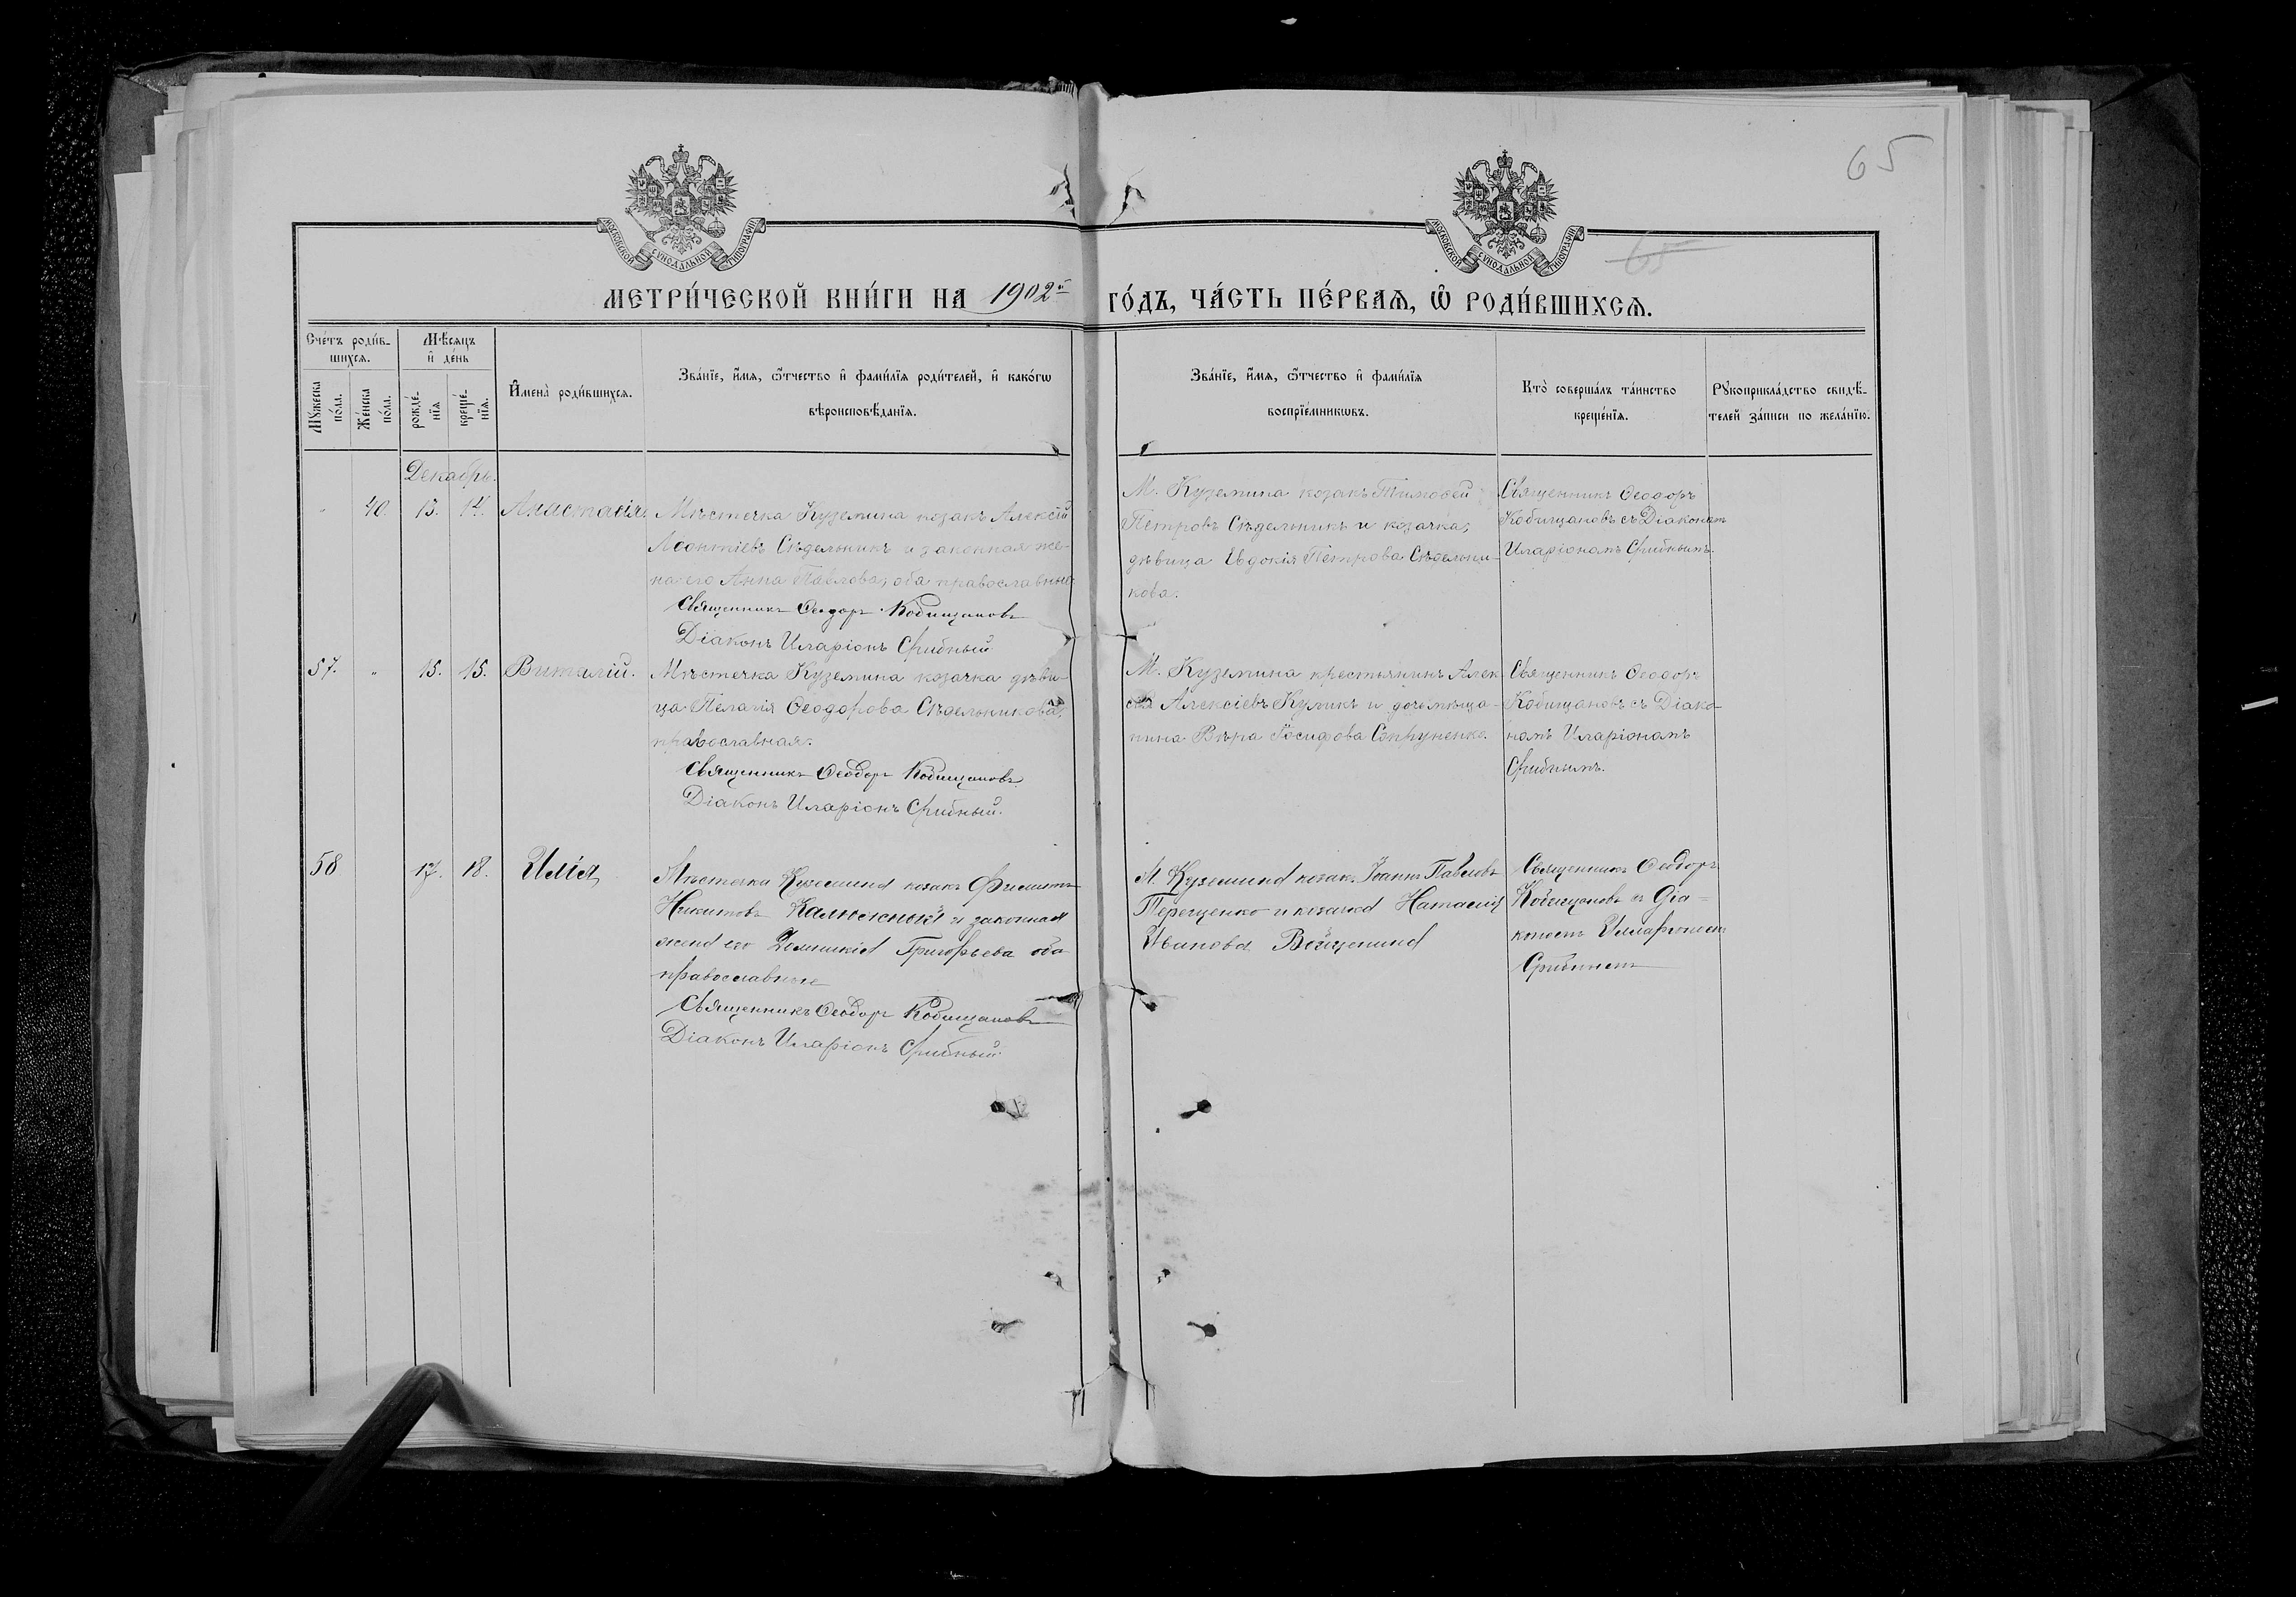 65
МОСКОВСКОЙ СѴНОДАЛЬНОЙ ТИПОГРАФІИ
МОСКОВСКОЙ СѴНОДАЛЬНОЙ ТИПОГРАФІИ
65
МЕТРИ́ЧЕСКОЙ КНИ́ГИ НА 1902й ГО́ДЪ, ЧА́СТЬ ПЕ́РВАѦ, Ѡ҆ РОДИ́ВШИХСѦ.
Сче́тъ роди́в-
шихсѧ.
Мѣ́сѧцъ
и҆ де́нь
Мꙋ́жеска
по́ла.
Же́нска
по́ла.
рожде́-
нїѧ
креще́-
нїѧ.
И҆мена̀ роди́вшихсѧ.
Зва́нїе, и҆́мѧ, ѻ҆́тчество и҆ фами́лїѧ роди́телей, и҆ како́гѡ
вѣроисповѣ́данїѧ.
Зва́нїе, и҆́мѧ, ѻ҆́тчество и҆ фами́лїѧ
воспрїе́мникѡвъ.
Кто̀ соверша́лъ та́инство
креще́нїѧ.
Рꙋкоприкла́дство свидѣ́-
телей за́писи по жела́нїю.
Декабрь.
" 40. 13. 14. Анастасія.
Мѣстечка Куземина козакъ Алексій
Леонтіевъ Сѣдельникъ и законная же-
на его Анна Павлова, оба православные.
Священникъ Ѳеодоръ Кобищановъ
Діаконъ Иларіонъ Срибный
М. Куземина козакъ Тимоѳей
Петровъ Сѣдельникъ и козачка,
дѣвица Евдокія Петрова Сѣдельни-
кова.
Священникъ Ѳеодоръ
Кобищановъ съ Діакономъ
Иларіономъ Срибнымъ.
57. " 15. 15. Виталій.
Мѣстечка Куземина козачка дѣви-
ца Пелагія Ѳеодорова Сѣдельникова,
православная.
Священникъ Ѳеодоръ Кобищановъ
Діаконъ Иларіонъ Срибный.
М. Куземина крестьянинъ Алек
сій Алексіевъ Куликъ и дочь мѣща-
нина Вѣра Іосифова Супруненко.
Священникъ Ѳеодоръ
Кобищановъ съ Діако-
номъ Иларіономъ
Срибнымъ.
58 17. 18. Илія
Мѣстечка Куземина козакъ Филиппъ
Никитовъ Калюжный и законная
жена его Домникія Григорьева оба
православные
Священникъ Ѳеодоръ Кобищановъ
Діаконъ Иларіонъ Срибный.
М. Куземина козак. Іоаннъ Павловъ
Терещенко и козачка Наталія
Иванова
Священникъ Ѳеодоръ
Кобищановъ съ Діа-
кономъ Илларіономъ
Срибнымъ